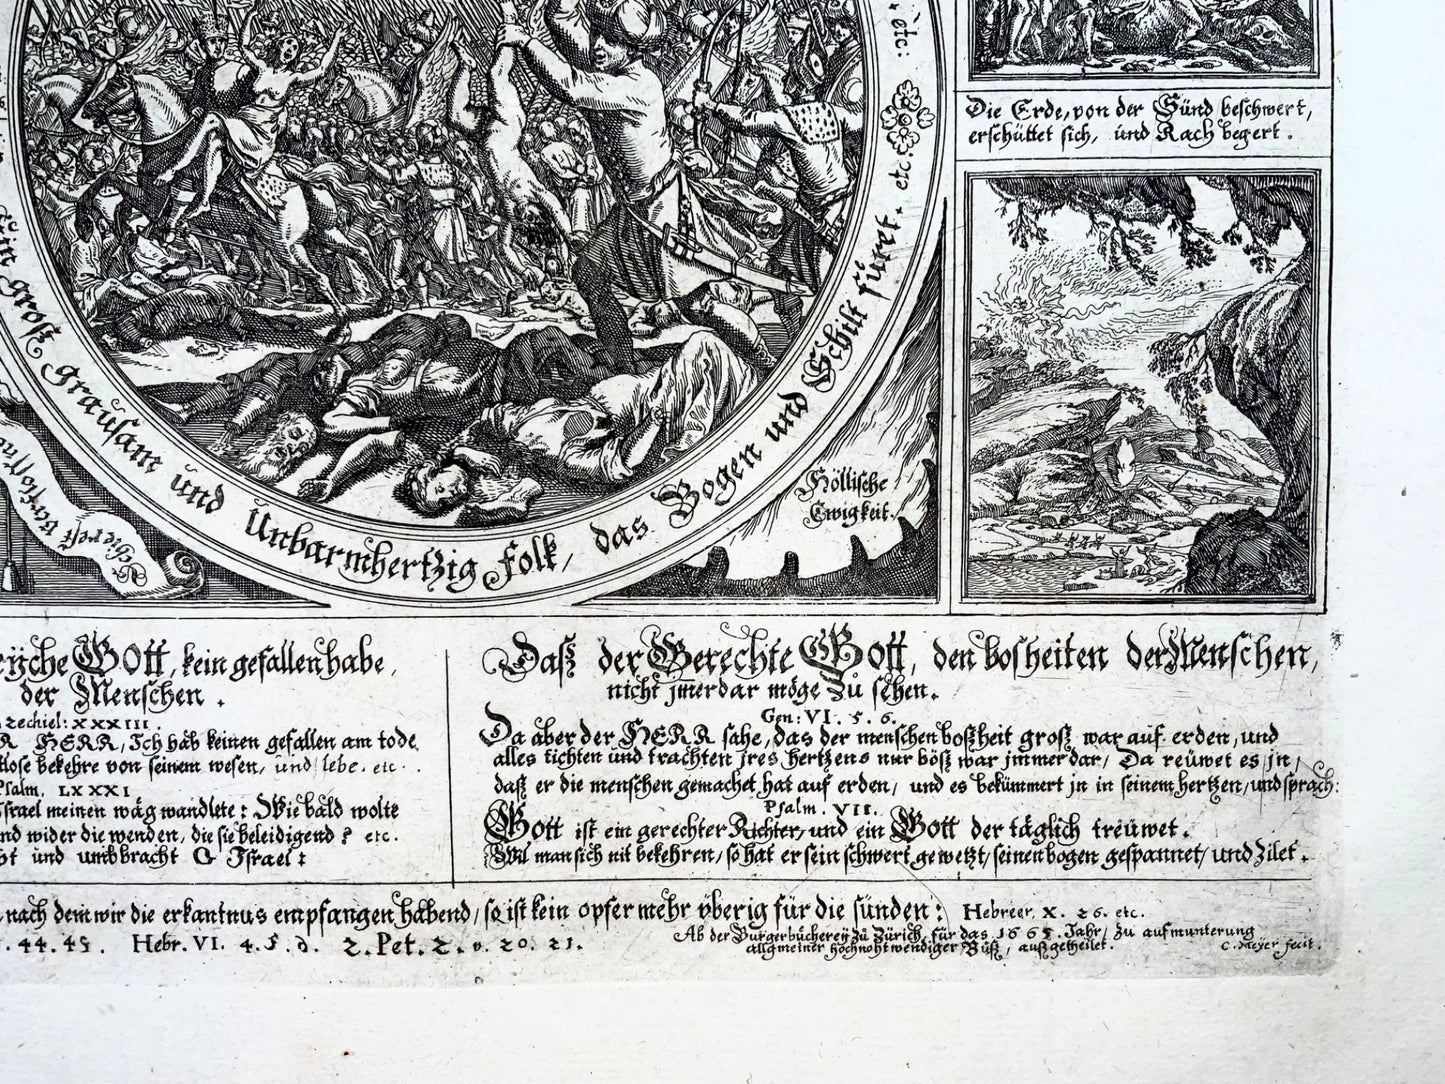 etc:
Die Erde, von der Sünd beschwert,
erschüttet sich, und Rach begert.
groß grausam und Unbarmhertzig folk, das Bogen und Schilt füret. etc:
Höllische
Ewigkeit.
Gott, kein gefallen habe,
der Menschen.
zechiel: XXXIII.
HERR, Ich hab keinen gefallen am tode
tlose bekehre von seinem wesen, und lebe. etc.
Psalm. LXXXI
Israel meinen wäg wandlete: Wie bald wolte
nd wider die wenden, die sie beleidigend? etc.
und umbbracht O Israel:
Daß der Gerechte Gott, den bosheiten der Menschen,
nicht jmerdar möge zu sehen.
Gen: VI. 5. 6.
Da aber der HERR sahe, das der menschen boßheit groß war auf erden, und
alles tichten und trachten jres hertzens nur böß war jmmerdar, Da reüwet es jn,
daß er die menschen gemachet hat auf erden, und es bekümmert jn in seinem hertzen, und sprach:
Psalm. VII.
Gott ist ein gerechter Richter, und ein Gott der täglich treüwet.
Wil man sich nit bekehren, so hat er sein schwert gewetzt, seinen bogen gespannet, und zilet.
nach dem wir die erkantnus empfangen habend, so ist kein opfer mehr überig für die sünden: Hebreer. X. 26. etc.
. 44. 45. Hebr. VI. 4. 5. 6. 2. Pet. 2. v. 20. 21.
Ab der Burgerbücherey zu Zürich, für das 1665. Jahr, zu aufmunterung
allgmeiner hochnohtwendiger Büß, außgetheilet.
C. Meyer fecit.